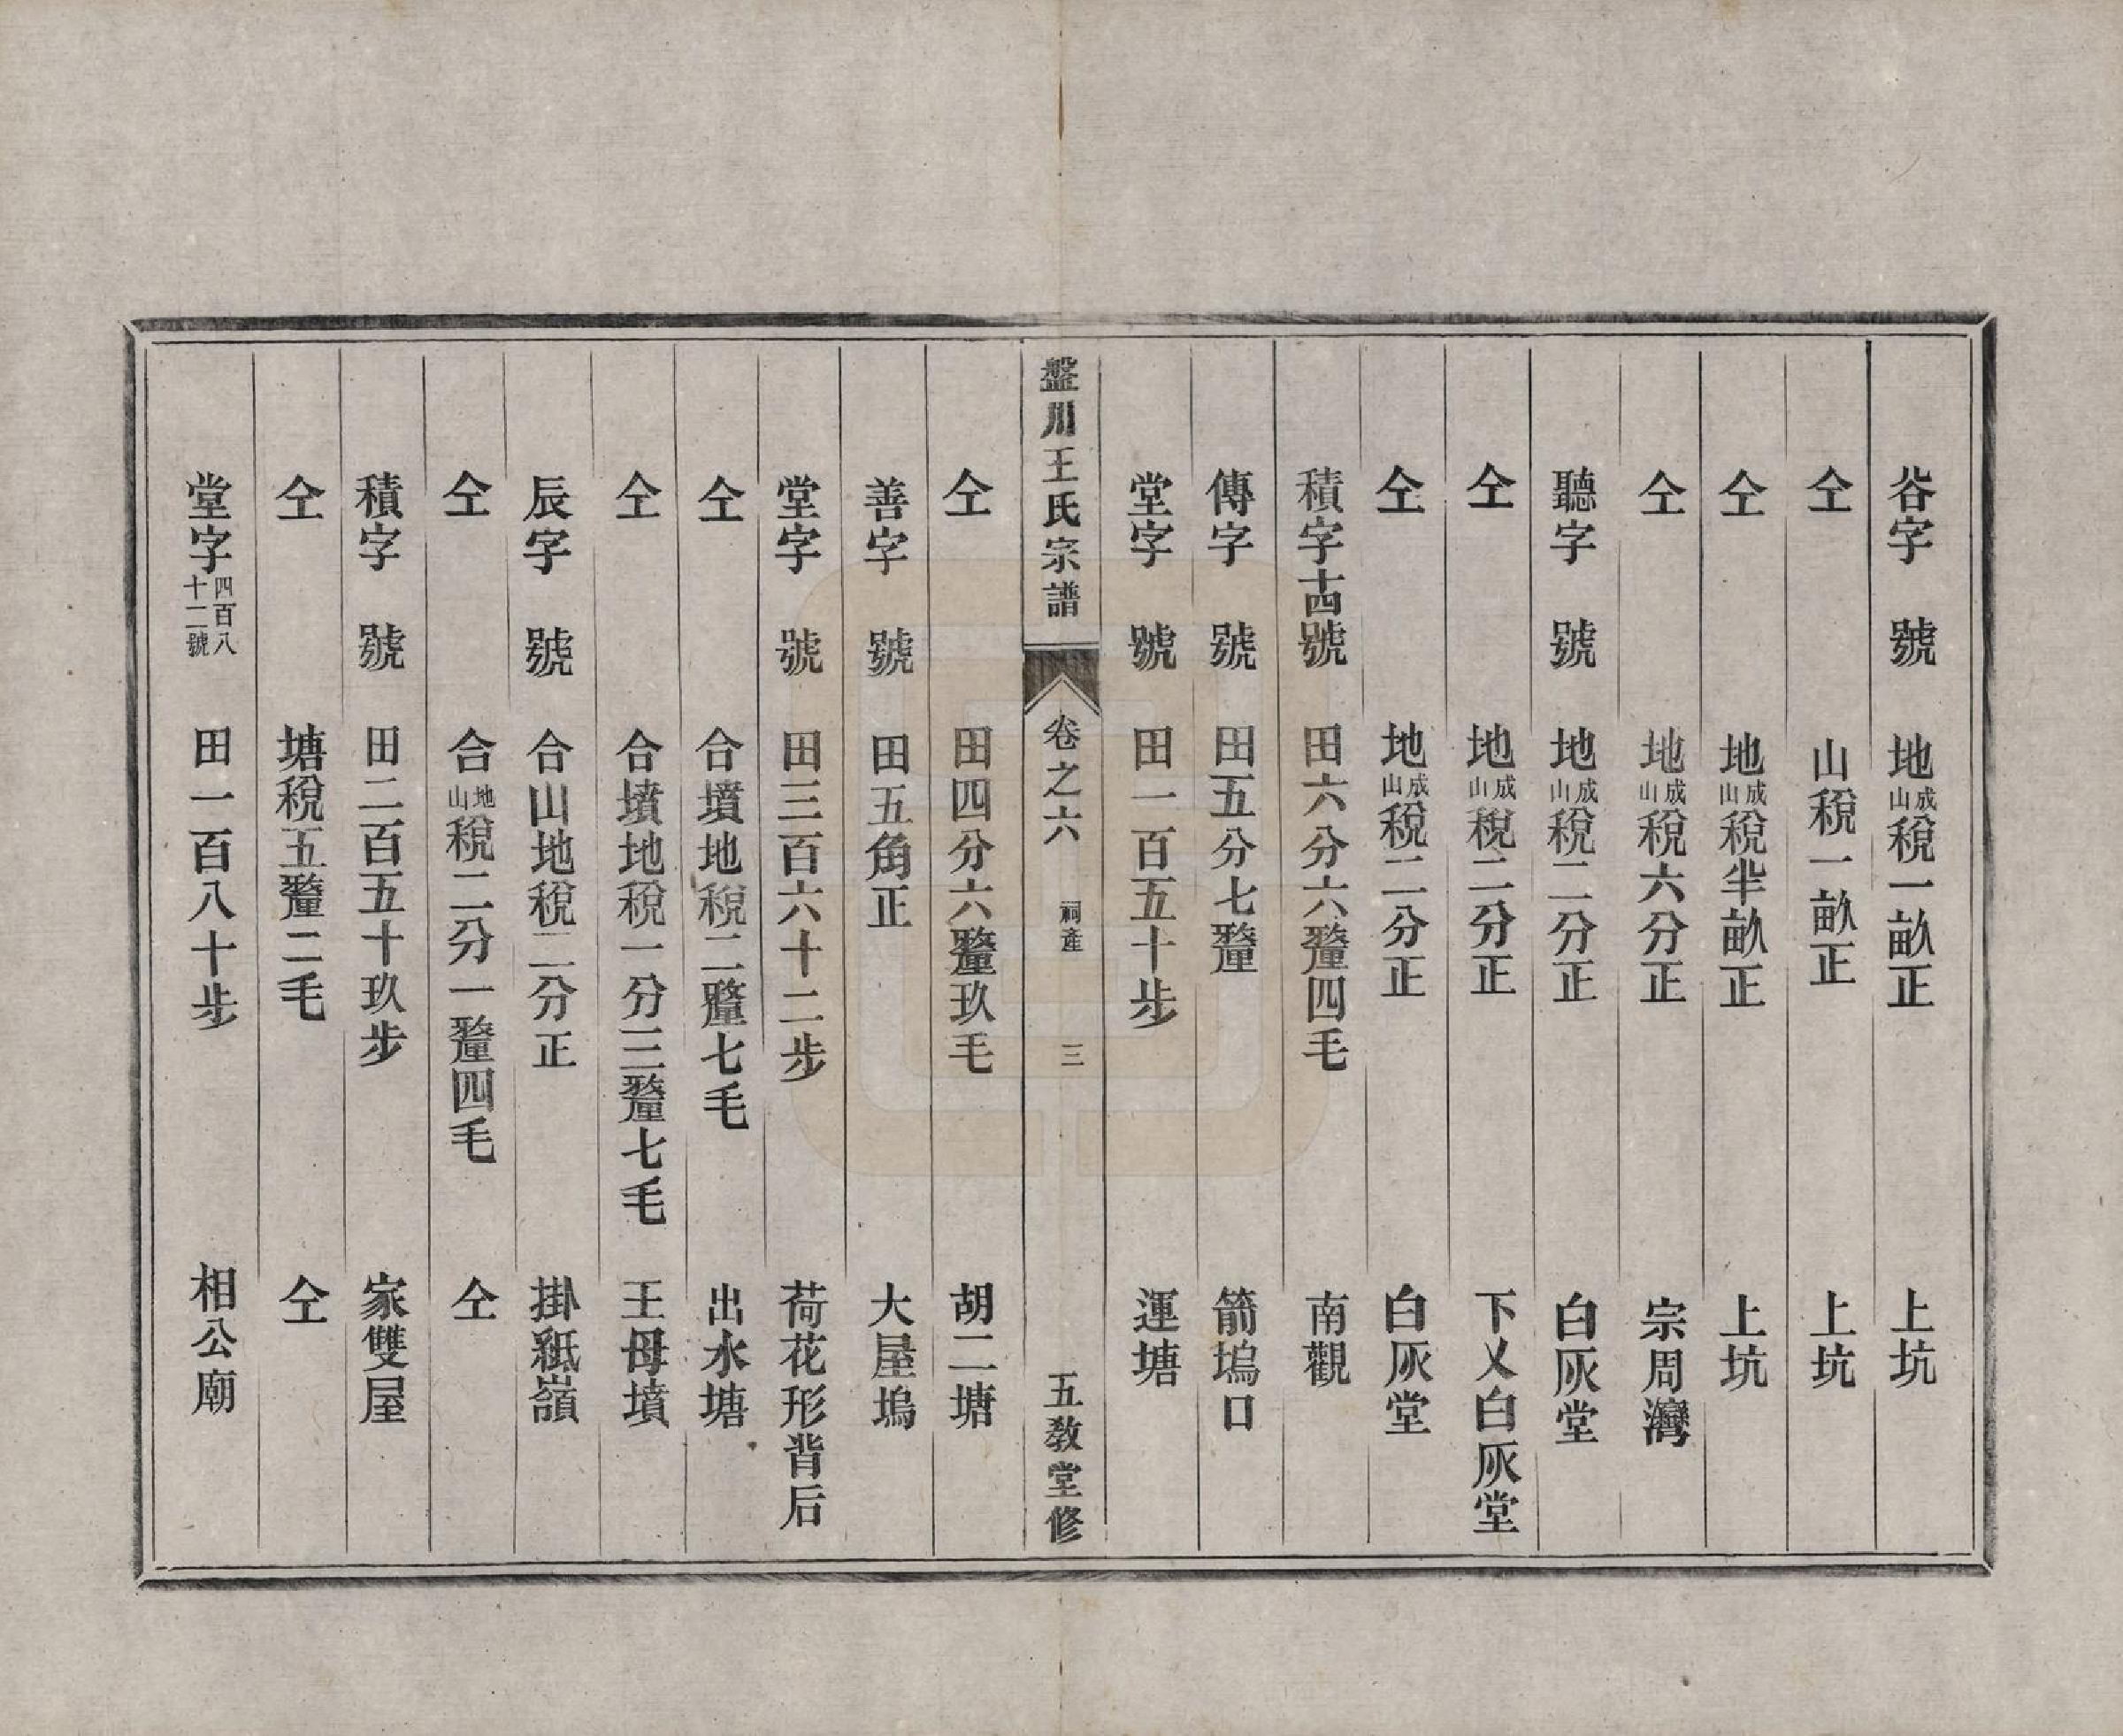 谷字　號　地成山稅一畝正　上坑
仝　山稅一畝正　上坑
仝　地成山稅半畝正　上坑
仝　地成山稅六分正　宗周灣
聽字　號　地成山稅二分正　白灰堂
仝　地成山稅二分正　下乂白灰堂
仝　地成山稅二分正　白灰堂
積字十四號　田六分六釐四毛　南觀
傳字　號　田五分七釐　箭塢口
堂字　號　田一百五十步　運塘
盤川王氏宗譜　卷之六　祠產　三　五教堂修
仝　田四分六釐玖毛　胡二塘
善字　號　田五角正　大屋塢
堂字　號　田三百六十二步　荷花形背后
仝　合墳地稅二釐七毛　出水塘
仝　合墳地稅一分三釐七毛　王母墳
辰字　號　合山地稅二分正　掛紙嶺
仝　合地山稅二分一釐四毛　仝
積字　號　田二百五十玖步　家雙屋
仝　塘稅五釐二毛　仝
堂字四百八十二號　田一百八十步　相公廟